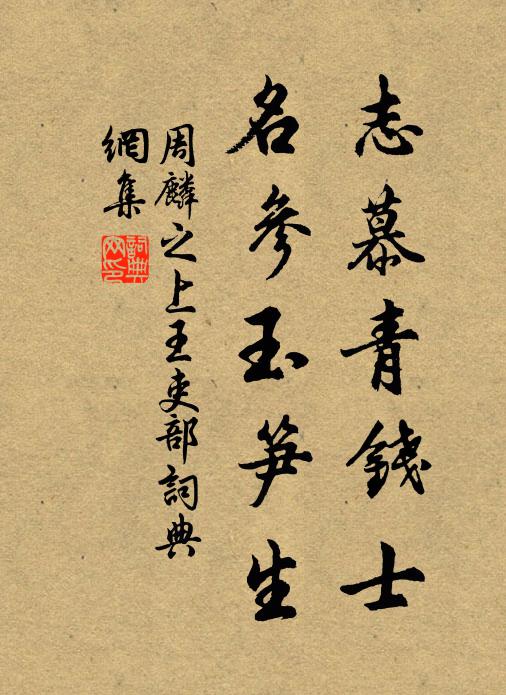 志慕青錢士
名參玉笋生
周麟之上王吏部詞典
網集
詞典
网印